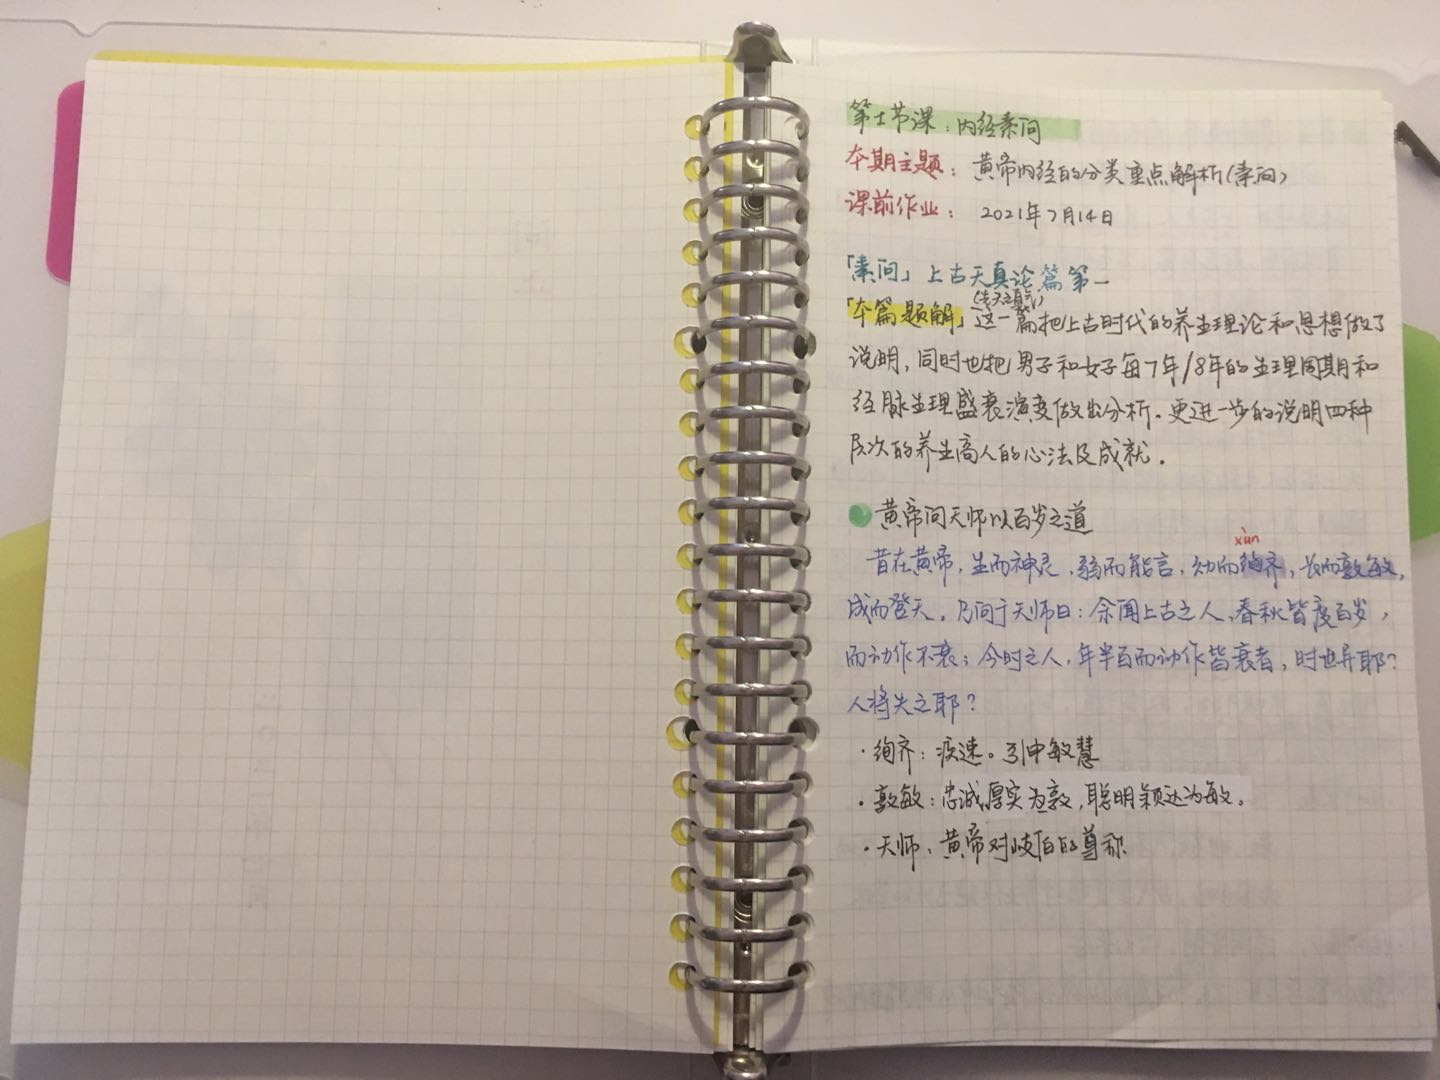 第七节课：内经素问
本期主题：黄帝内经的分类重点解析（素问）
课前作业：2021年7月14日
「素问」上古天真论篇第一
(先天之真气)
「本篇题解」这一篇把上古时代的养生理论和思想做了
说明，同时也把男子和女子每7年/8年的生理周期和
经脉生理盛衰演变做出分析。更进一步的说明四种
层次的养生高人的心法及成就。
黄帝问天师以百岁之道
xùn
昔在黄帝，生而神灵，弱而能言，幼而徇齐，长而敦敏，
成而登天。乃问于天师曰：余闻上古之人，春秋皆度百岁，
而动作不衰；今时之人，年半百而动作皆衰者，时世异耶？
人将失之耶？
·徇齐：疾速。引申敏慧
·敦敏：忠诚厚实为敦，聪明颖达为敏。
·天师、黄帝对岐伯的尊称